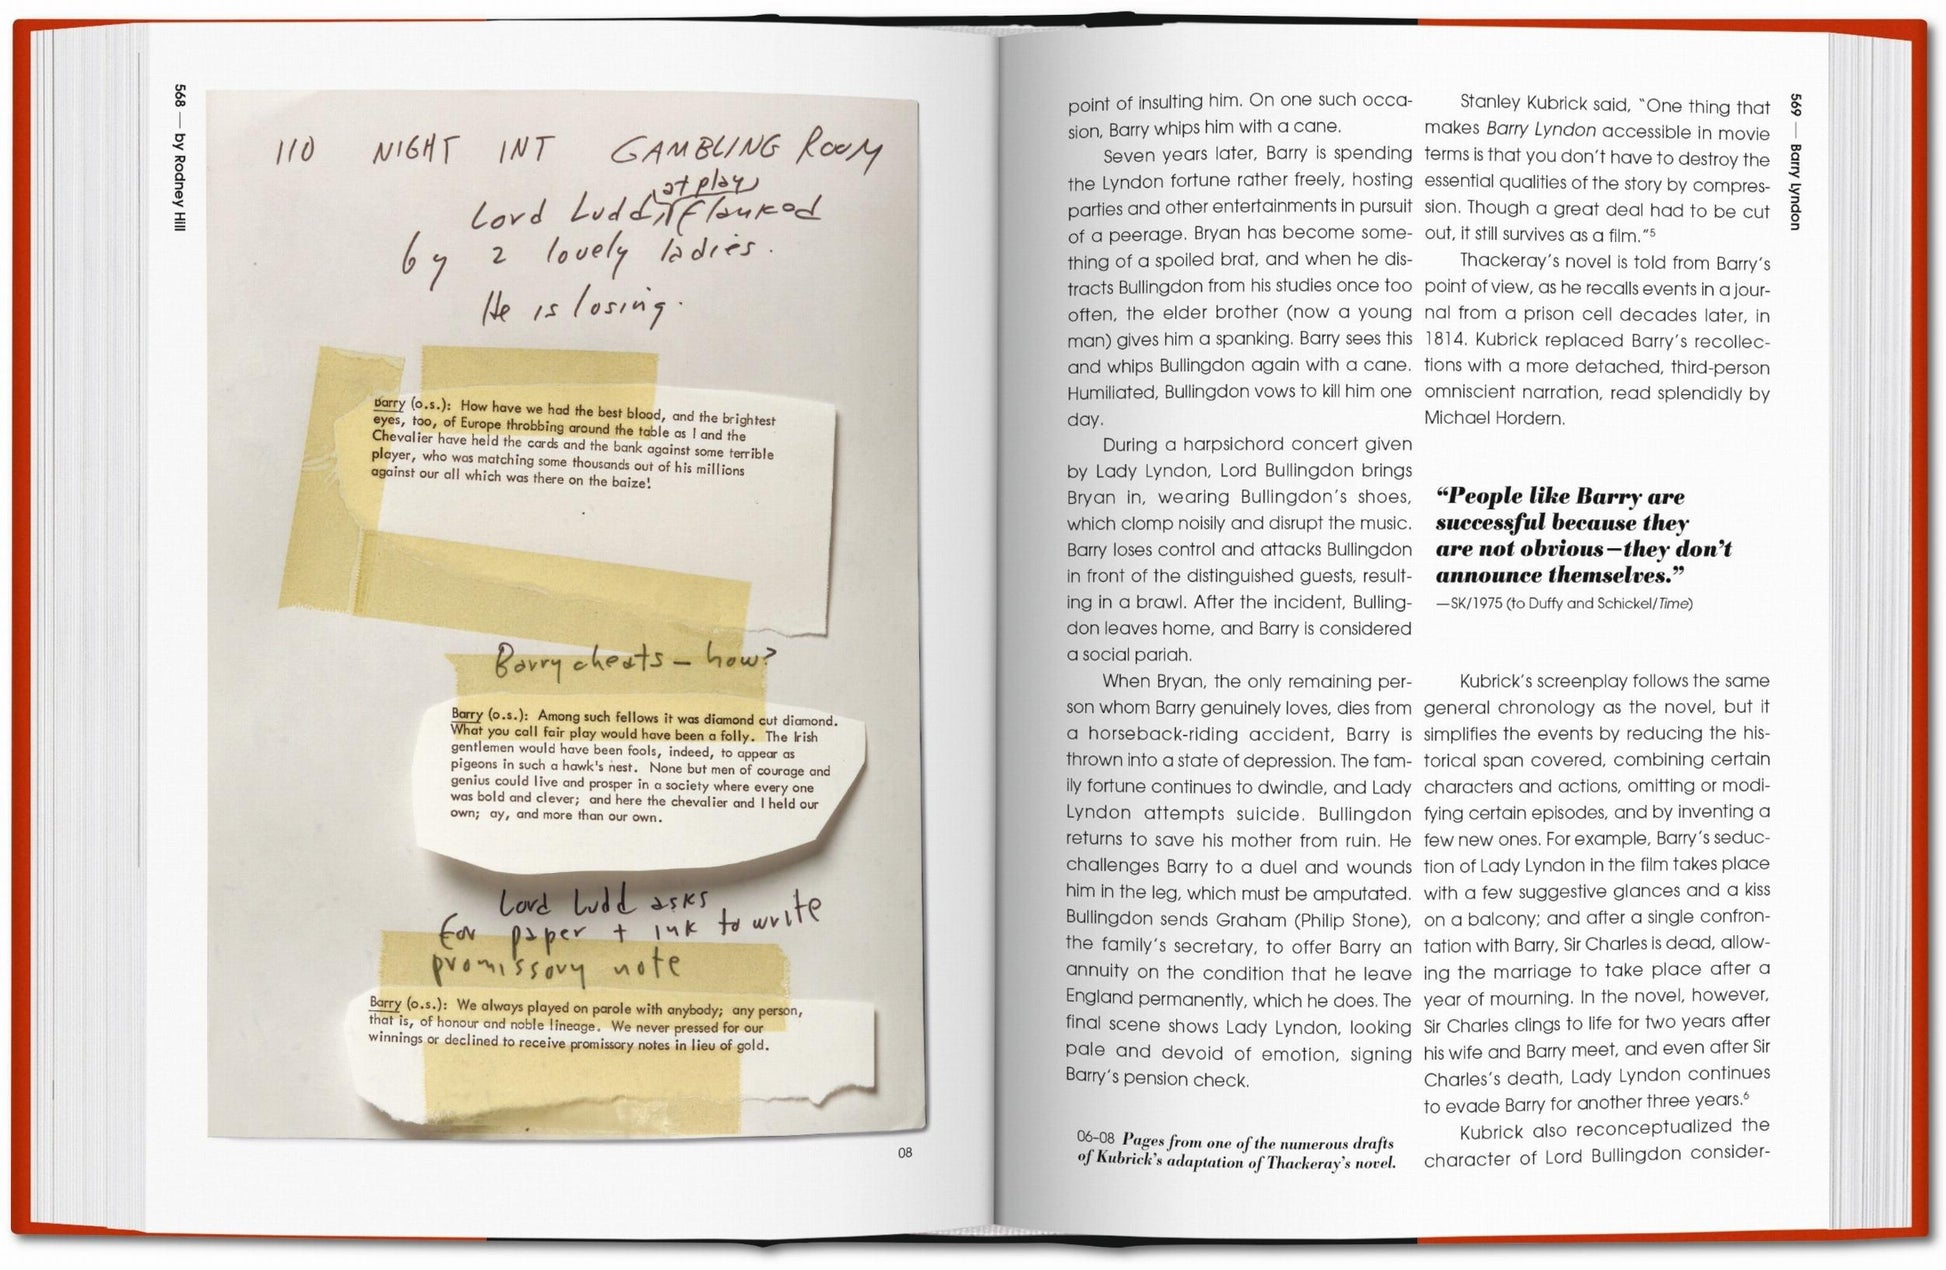 568 — by Rodney Hill
110 NIGHT INT GAMBLING ROOM
at play
Lord Ludd, flanked
by 2 lovely ladies.
He is losing.
Barry (o.s.): How have we had the best blood, and the brightest
eyes, too, of Europe throbbing around the table as I and the
Chevalier have held the cards and the bank against some terrible
player, who was matching some thousands out of his millions
against our all which was there on the baize!
Barry cheats — how?
Barry (o.s.): Among such fellows it was diamond cut diamond.
What you call fair play would have been a folly. The Irish
gentlemen would have been fools, indeed, to appear as
pigeons in such a hawk's nest. None but men of courage and
genius could live and prosper in a society where every one
was bold and clever; and here the chevalier and I held our
own; ay, and more than our own.
Lord Ludd asks
for paper + ink to write
promissory note
Barry (o.s.): We always played on parole with anybody; any person,
that is, of honour and noble lineage. We never pressed for our
winnings or declined to receive promissory notes in lieu of gold.
08
point of insulting him. On one such occa-
sion, Barry whips him with a cane.
Seven years later, Barry is spending
the Lyndon fortune rather freely, hosting
parties and other entertainments in pursuit
of a peerage. Bryan has become some-
thing of a spoiled brat, and when he dis-
tracts Bullingdon from his studies once too
often, the elder brother (now a young
man) gives him a spanking. Barry sees this
and whips Bullingdon again with a cane.
Humiliated, Bullingdon vows to kill him one
day.
During a harpsichord concert given
by Lady Lyndon, Lord Bullingdon brings
Bryan in, wearing Bullingdon's shoes,
which clomp noisily and disrupt the music.
Barry loses control and attacks Bullingdon
in front of the distinguished guests, result-
ing in a brawl. After the incident, Bulling-
don leaves home, and Barry is considered
a social pariah.
When Bryan, the only remaining per-
son whom Barry genuinely loves, dies from
a horseback-riding accident, Barry is
thrown into a state of depression. The fam-
ily fortune continues to dwindle, and Lady
Lyndon attempts suicide. Bullingdon
returns to save his mother from ruin. He
challenges Barry to a duel and wounds
him in the leg, which must be amputated.
Bullingdon sends Graham (Philip Stone),
the family's secretary, to offer Barry an
annuity on the condition that he leave
England permanently, which he does. The
final scene shows Lady Lyndon, looking
pale and devoid of emotion, signing
Barry's pension check.
06–08 Pages from one of the numerous drafts
of Kubrick's adaptation of Thackeray's novel.
Stanley Kubrick said, "One thing that
makes Barry Lyndon accessible in movie
terms is that you don't have to destroy the
essential qualities of the story by compres-
sion. Though a great deal had to be cut
out, it still survives as a film."⁵
Thackeray's novel is told from Barry's
point of view, as he recalls events in a jour-
nal from a prison cell decades later, in
1814. Kubrick replaced Barry's recollec-
tions with a more detached, third-person
omniscient narration, read splendidly by
Michael Hordern.
“People like Barry are
successful because they
are not obvious—they don’t
announce themselves.”
—SK/1975 (to Duffy and Schickel/Time)
Kubrick's screenplay follows the same
general chronology as the novel, but it
simplifies the events by reducing the his-
torical span covered, combining certain
characters and actions, omitting or modi-
fying certain episodes, and by inventing a
few new ones. For example, Barry's seduc-
tion of Lady Lyndon in the film takes place
with a few suggestive glances and a kiss
on a balcony; and after a single confron-
tation with Barry, Sir Charles is dead, allow-
ing the marriage to take place after a
year of mourning. In the novel, however,
Sir Charles clings to life for two years after
his wife and Barry meet, and even after Sir
Charles's death, Lady Lyndon continues
to evade Barry for another three years.⁶
Kubrick also reconceptualized the
character of Lord Bullingdon consider-
569 — Barry Lyndon